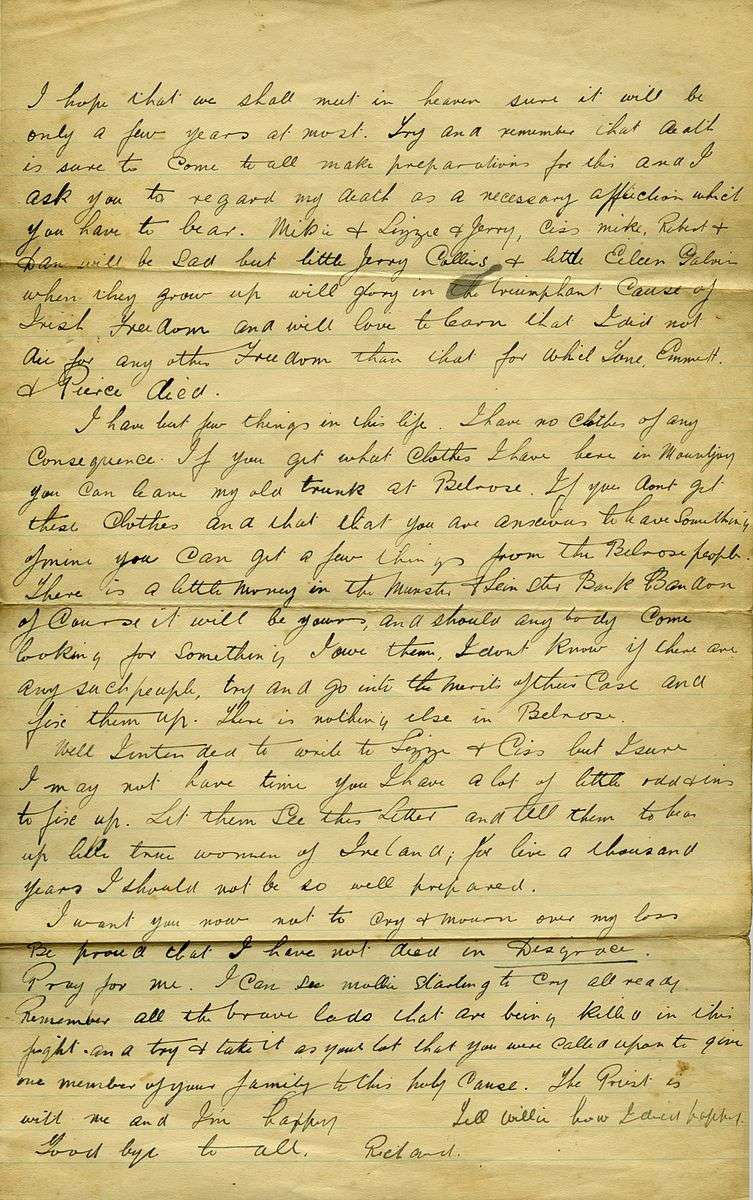 I hope that we shall meet in heaven sure it will be
only a few years at most. Try and remember that death
is sure to Come to all make preparations for this and I
ask you to regard my death as a necessary affliction which
you have to bear. Mikie & Lizzie & Jerry, Ciss mike, Robert &
Dan will be Sad but little Jerry Collins & little Eileen Galvin
when they grow up will glory in the triumphant Cause of
Irish Freedom and will love to learn that I did not
die for any other Freedom than that for which Tone, Emmett.
& Pierce died.
I have but few things in this life. I have no clothes of any
Consequence. If you get what Clothes I have here in Mountjoy
you can leave my old trunk at Belrose. If you dont get
these Clothes and that that you are anxious to have Something
of mine you can get a few things from the Belrose people.
There is a little money in the Munster & Leinster Bank Bandon
of Course it will be yours, and should any body Come
looking for Something I owe them, I dont know if there are
any such people, try and go into the merits of their Case and
fix them up. There is nothing else in Belrose.
Well I intended to write to Lizzie & Ciss but I sure
I may not have time you I have a lot of little odd & ins
to fix up. Let them See this Letter and tell them to bear
up like true women of Ireland; for live a thousand
years I should not be so well prepared.
I want you now not to cry & mourn over my loss
Be proud that I have not died in Disgrace.
Pray for me. I Can see mollie starting to Cry all ready
Remember all the brave lads that are being killed in this
fight and try & take it as your lot that you were called upon to give
one member of your family to this holy Cause. The Priest is
with me and I'm happy Tell Willie how I died happy.
Good bye to all. Richard.